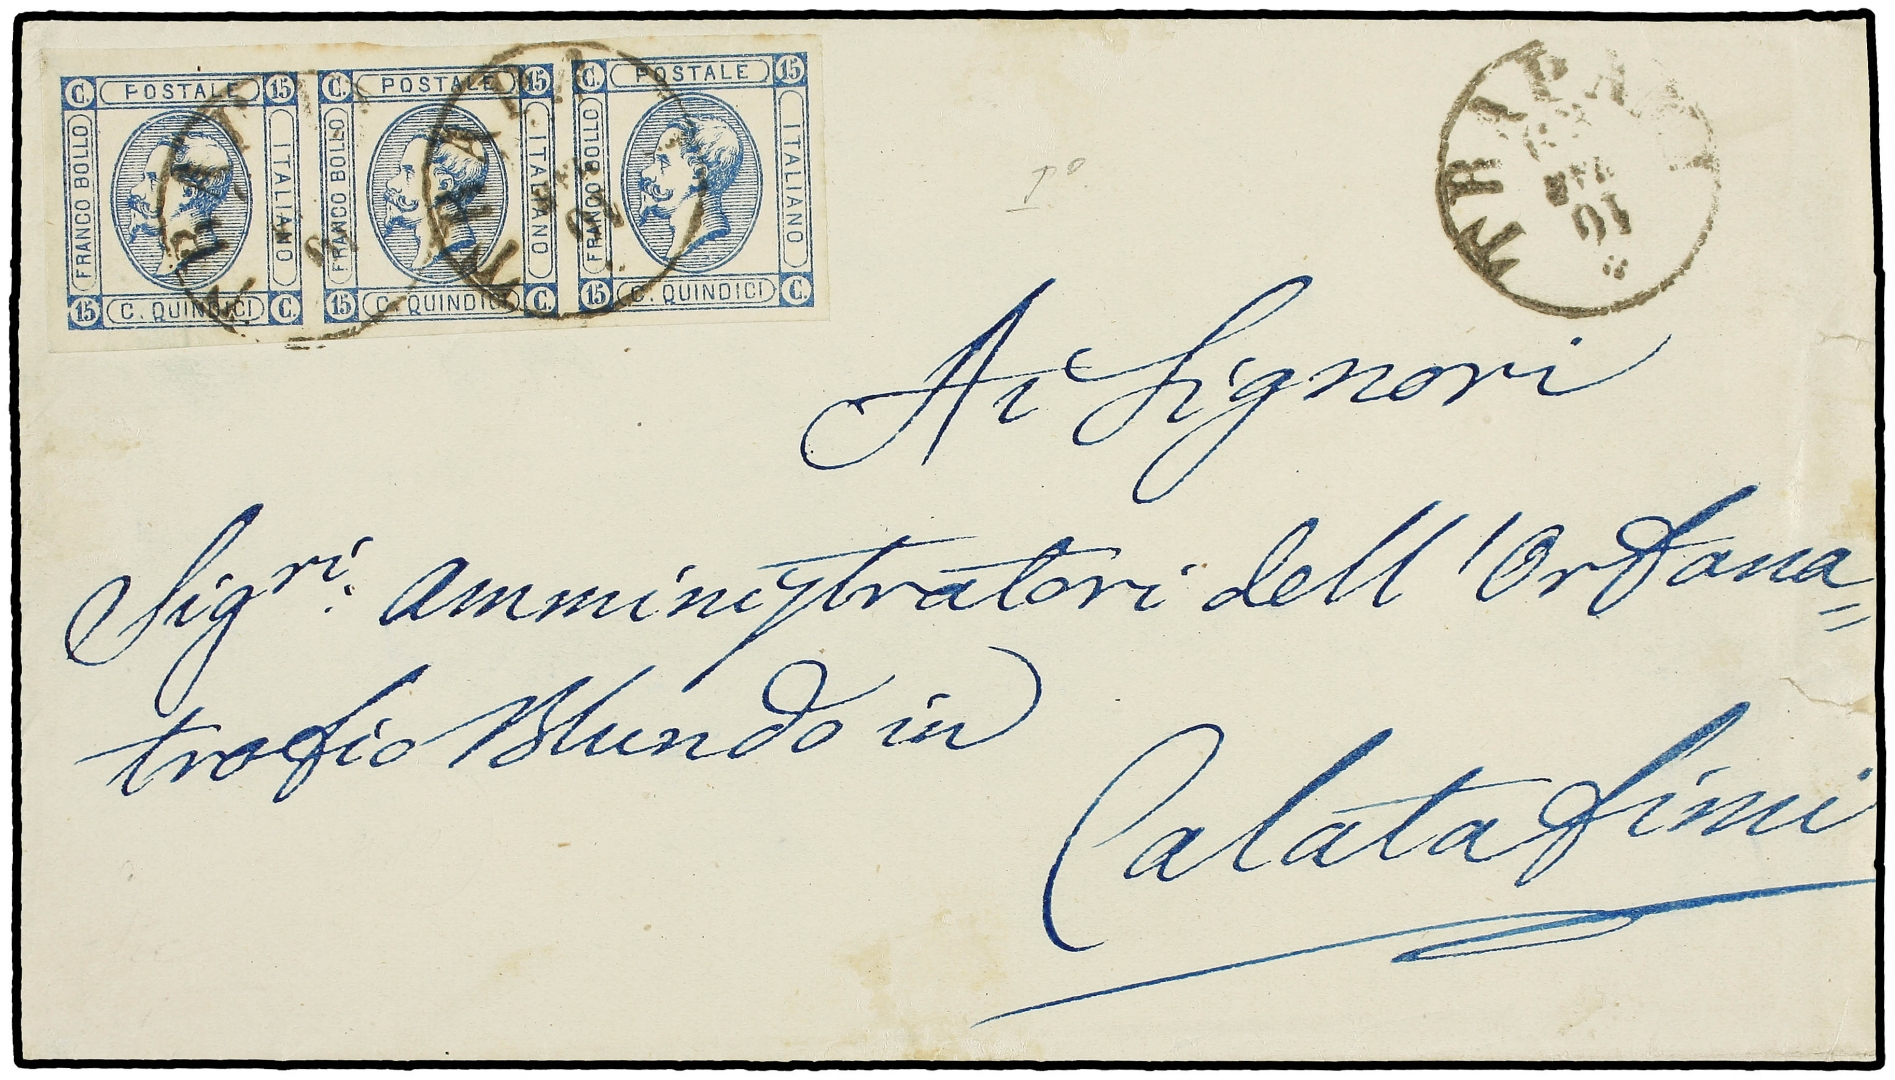 C. POSTALE 15 C. POSTALE 15 C. POSTALE 15
FRANCO BOLLO ITALIANO FRANCO BOLLO ITALIANO FRANCO BOLLO ITALIANO
15 C. QUINDICI C. 15 C. QUINDICI C. 15 C. QUINDICI C.
TRAPANI
TRAPANI
TRAPANI
16
Ai Signori
Sigri. Amministratori dell'Orfana=
trofio Blundo in
Calatafimi